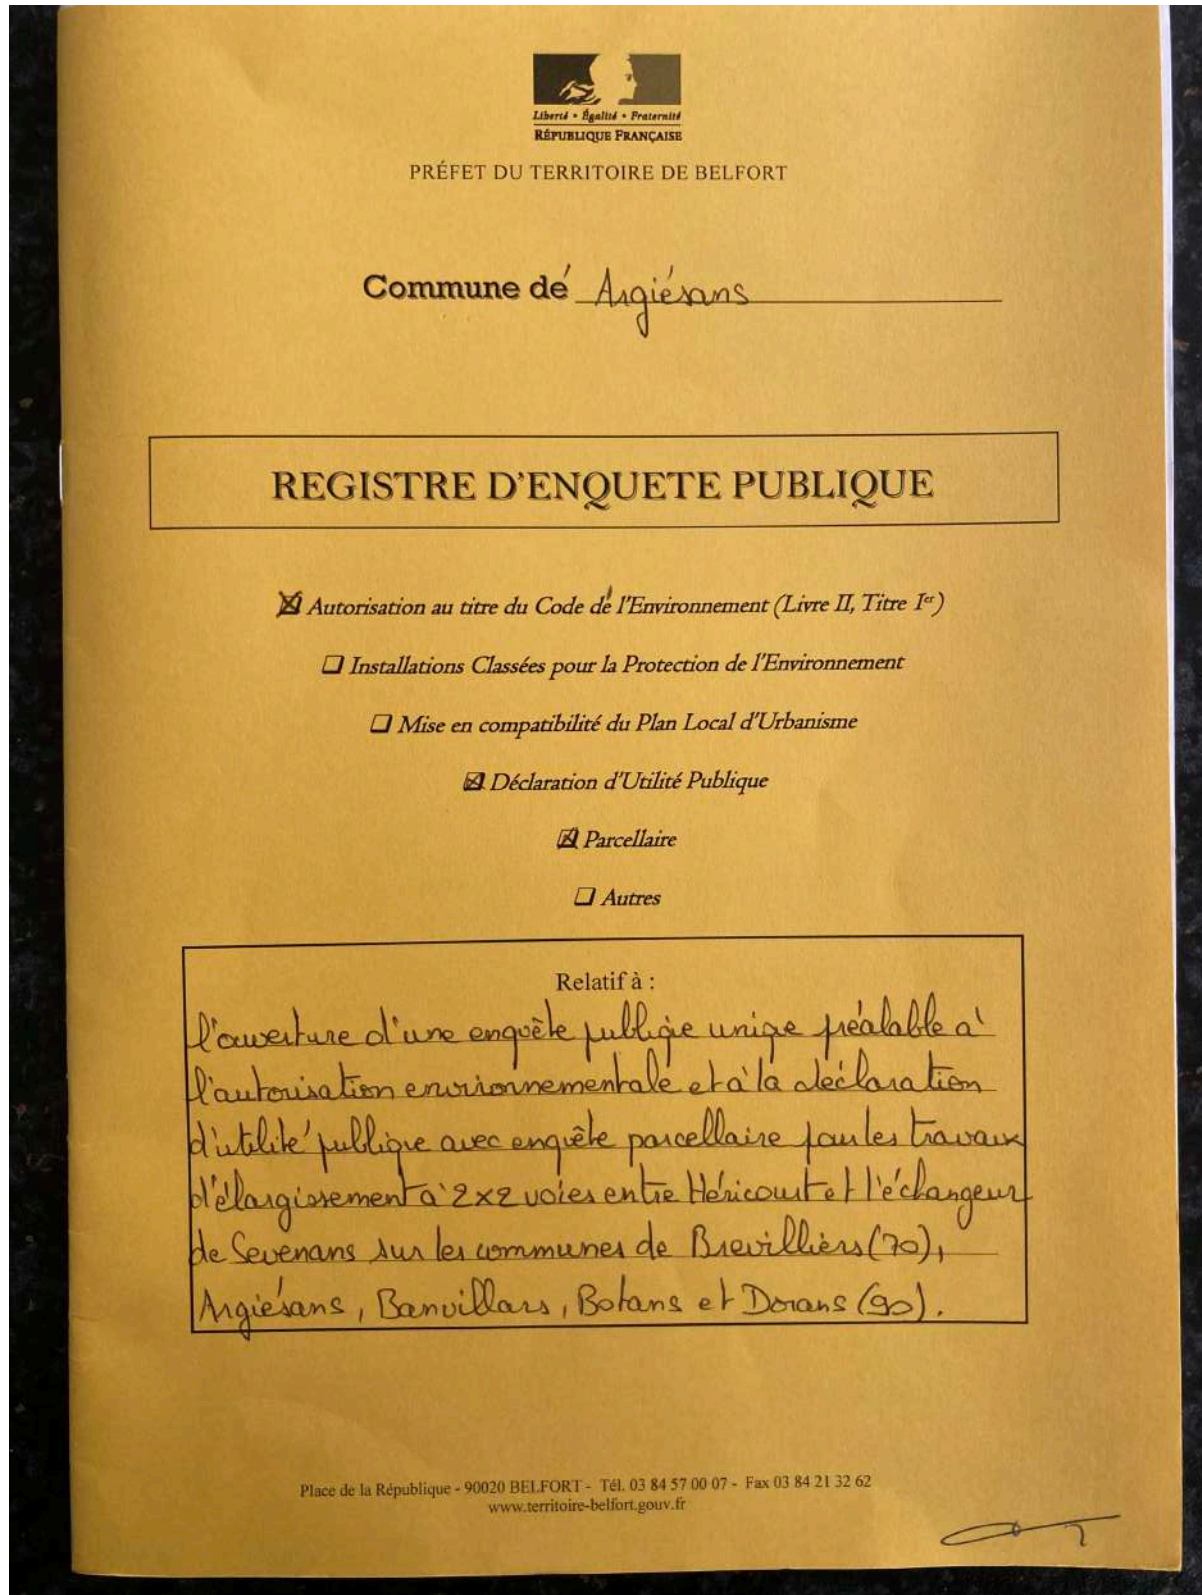 Liberté • Égalité • Fraternité
RÉPUBLIQUE FRANÇAISE
PRÉFET DU TERRITOIRE DE BELFORT
Commune de Argiésans
REGISTRE D'ENQUETE PUBLIQUE
☒ Autorisation au titre du Code de l'Environnement (Livre II, Titre Ier)
❑ Installations Classées pour la Protection de l'Environnement
❑ Mise en compatibilité du Plan Local d'Urbanisme
☒ Déclaration d'Utilité Publique
☒ Parcellaire
❑ Autres
Relatif à :
l'ouverture d'une enquête publique unique préalable à
l'autorisation environnementale et à la déclaration
d'utilité publique avec enquête parcellaire pour les travaux
d'élargissement à 2x2 voies entre Héricourt et l'échangeur
de Sevenans sur les communes de Brevilliers (70),
Argiésans, Banvillars, Botans et Dorans (90).
Place de la République - 90020 BELFORT - Tél. 03 84 57 00 07 - Fax 03 84 21 32 62
www.territoire-belfort.gouv.fr